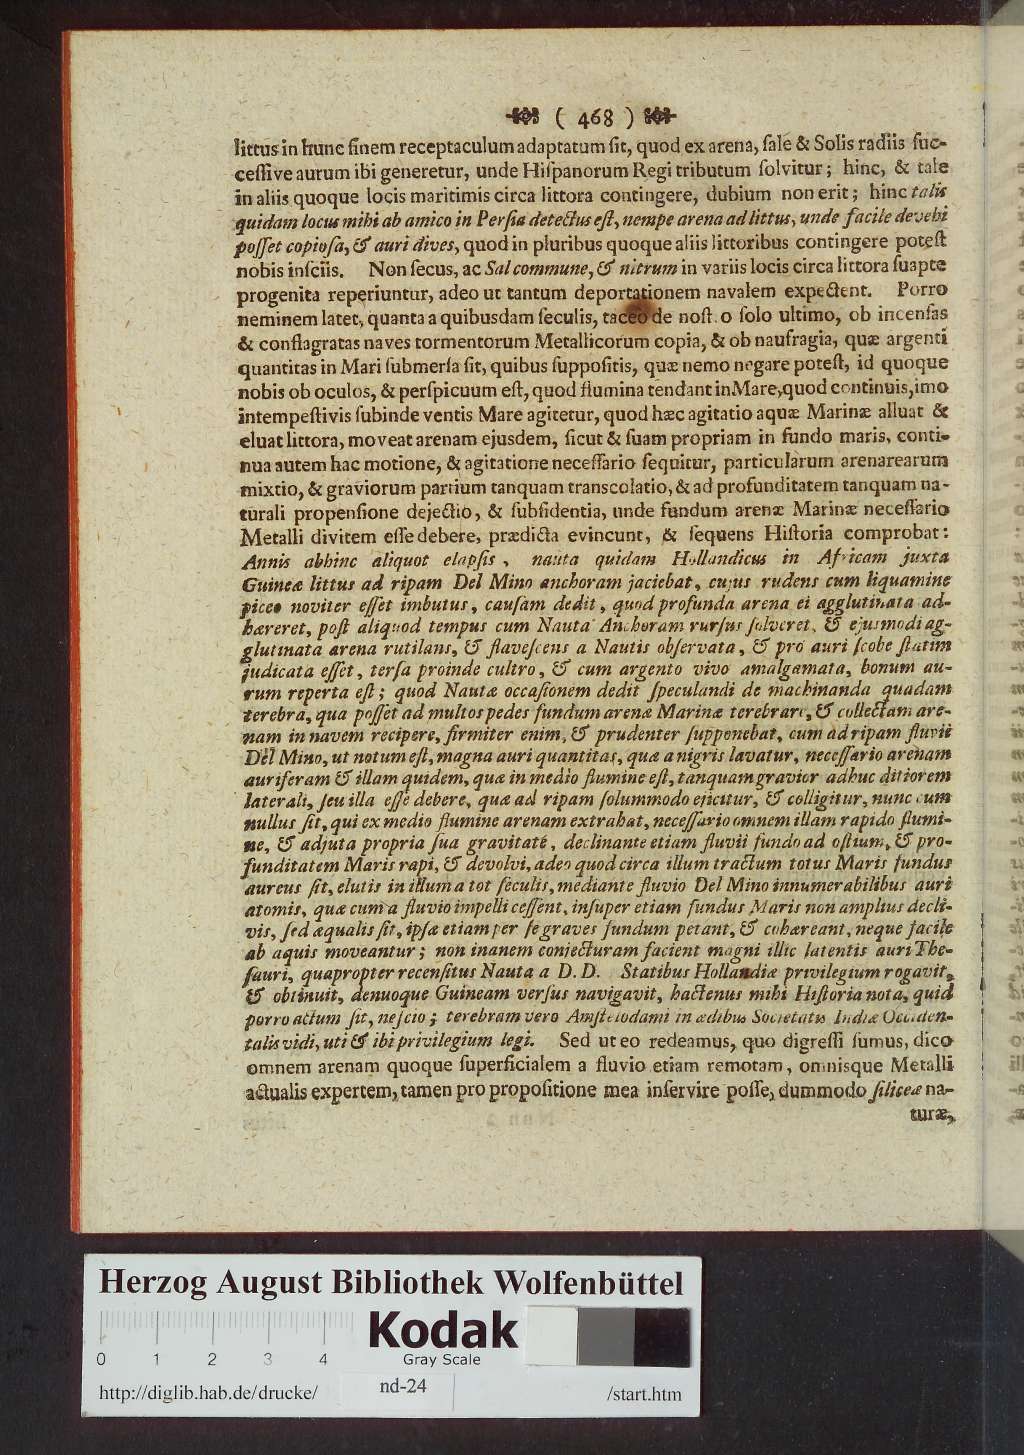 ( 468 )
littus in hunc finem receptaculum adaptatum ſit, quod ex arena, ſale & Solis radiis ſuc-
ceſſive aurum ibi generetur, unde Hiſpanorum Regi tributum ſolvitur; hinc, & tale
in aliis quoque locis maritimis circa littora contingere, dubium non erit; hinc talis
quidam locus mihi ab amico in Perſia detectus eſt, nempe arena ad littus, unde facile devehi
poſſet copioſa, & auri dives, quod in pluribus quoque aliis littoribus contingere poteſt
nobis inſciis. Non ſecus, ac Sal commune, & nitrum in variis locis circa littora ſuapte
progenita reperiuntur, adeo ut tantum deportationem navalem expectent. Porro
neminem latet, quanta a quibusdam ſeculis, taceo de noſt.o ſolo ultimo, ob incenſas
& conflagratas naves tormentorum Metallicorum copia, & ob naufragia, quæ argenti
quantitas in Mari ſubmerſa ſit, quibus ſuppoſitis, quæ nemo negare poteſt, id quoque
nobis ob oculos, & perſpicuum eſt, quod flumina tendant in Mare, quod continuis, imo
intempeſtivis ſubinde ventis Mare agitetur, quod hæc agitatio aquæ Marinæ alluat &
eluat littora, moveat arenam ejusdem, ſicut & ſuam propriam in fundo maris, conti-
nua autem hac motione, & agitatione neceſſario ſequitur, particularum arenarearum
mixtio, & graviorum partium tanquam transcolatio, & ad profunditatem tanquam na-
turali propenſione dejectio, & ſubſidentia, unde fundum arenæ Marinæ neceſſario
Metalli divitem eſſe debere, prædicta evincunt, & ſequens Hiſtoria comprobat:
Annis abhinc aliquot elapſis, nauta quidam Hollandicus in Africam juxta
Guineæ littus ad ripam Del Mino anchoram jaciebat, cujus rudens cum liquamine
piceo noviter eſſet imbutus, cauſam dedit, quod profunda arena ei agglutinata ad-
hæreret, poſt aliquod tempus cum Nauta Anchoram rurſus ſolveret, & ejusmodi ag-
glutinata arena rutilans, & flaveſcens a Nautis obſervata, & pro auri ſcobe ſtatim
judicata eſſet, terſa proinde cultro, & cum argento vivo amalgamata, bonum au-
rum reperta eſt; quod Nautæ occaſionem dedit ſpeculandi de machinanda quadam
terebra, qua poſſet ad multos pedes fundum arenæ Marinæ terebrare, & collectam are-
nam in navem recipere, firmiter enim, & prudenter ſupponebat, cum ad ripam fluvii
Del Mino, ut notum eſt, magna auri quantitas, quæ a nigris lavatur, neceſſario arenam
auriferam & illam quidem, quæ in medio flumine eſt, tanquam gravior adhuc ditiorem
laterali, ſeu illa eſſe debere, quæ ad ripam ſolummodo ejicitur, & colligitur, nunc cum
nullus ſit, qui ex medio flumine arenam extrahat, neceſſario omnem illam rapido flumi-
ne, & adjuta propria ſua gravitate, declinante etiam fluvii fundo ad oſtium, & pro-
funditatem Maris rapi, & devolvi, adeo quod circa illum tractum totus Maris fundus
aureus ſit, elutis in illum a tot ſeculis, mediante fluvio Del Mino innumerabilibus auri
atomis, quæ cum a fluvio impelli ceſſent, inſuper etiam fundus Maris non amplius decli-
vis, ſed æqualis ſit, ipſæ etiam per ſe graves fundum petant, & cohæreant, neque facile
ab aquis moveantur; non inanem conjecturam facient magni illic latentis auri The-
ſauri, quapropter recenſitus Nauta a D. D. Statibus Hollandiæ privilegium rogavit,
& obtinuit, denuoque Guineam verſus navigavit, hactenus mihi Hiſtoria nota, quid
porro actum ſit, neſcio; terebram vero Amſtelodami in ædibus Societatis Indiæ Occiden-
talis vidi, uti & ibi privilegium legi. Sed ut eo redeamus, quo digreſſi ſumus, dico
omnem arenam quoque ſuperficialem a fluvio etiam remotam, omnisque Metalli
actualis expertem, tamen pro propoſitione mea inſervire poſſe, dummodo ſiliceæ na-
turæ,
Herzog August Bibliothek Wolfenbüttel
Kodak
Gray Scale
0 1 2 3 4
http://diglib.hab.de/drucke/ nd-24 /start.htm